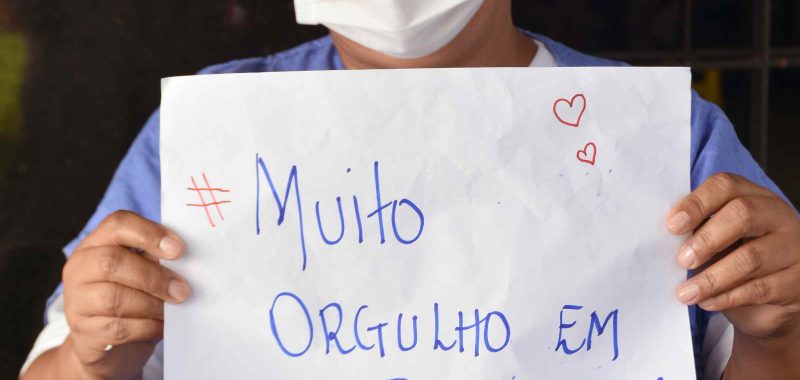 # Muito
ORGULHO EM